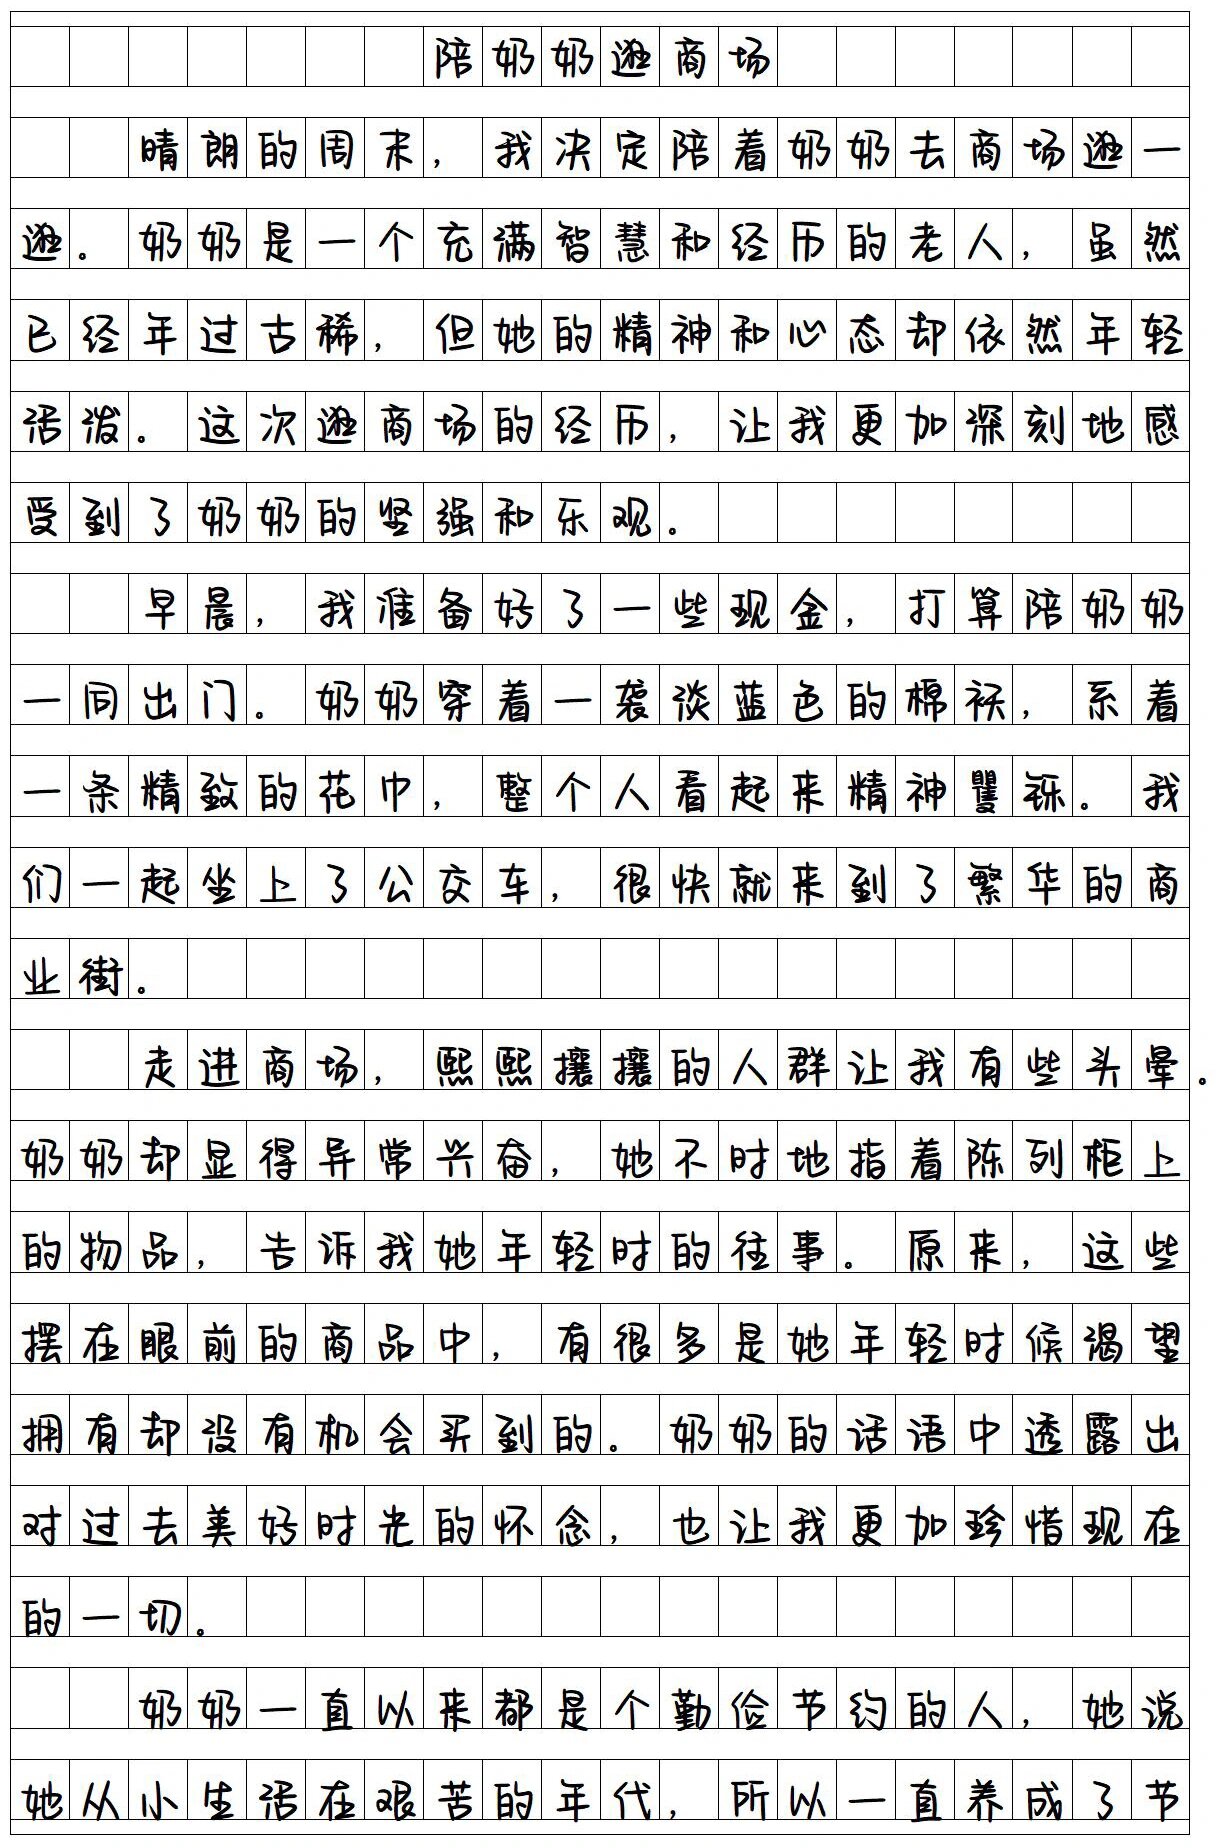 陪奶奶逛商场
晴朗的周末，我决定陪着奶奶去商场逛一
逛。奶奶是一个充满智慧和经历的老人，虽然
已经年过古稀，但她的精神和心态却依然年轻
活泼。这次逛商场的经历，让我更加深刻地感
受到了奶奶的坚强和乐观。
早晨，我准备好了一些现金，打算陪奶奶
一同出门。奶奶穿着一袭淡蓝色的棉袄，系着
一条精致的花巾，整个人看起来精神矍铄。我
们一起坐上了公交车，很快就来到了繁华的商
业街。
走进商场，熙熙攘攘的人群让我有些头晕。
奶奶却显得异常兴奋，她不时地指着陈列柜上
的物品，告诉我她年轻时的往事。原来，这些
摆在眼前的商品中，有很多是她年轻时候渴望
拥有却没有机会买到的。奶奶的话语中透露出
对过去美好时光的怀念，也让我更加珍惜现在
的一切。
奶奶一直以来都是个勤俭节约的人，她说
她从小生活在艰苦的年代，所以一直养成了节